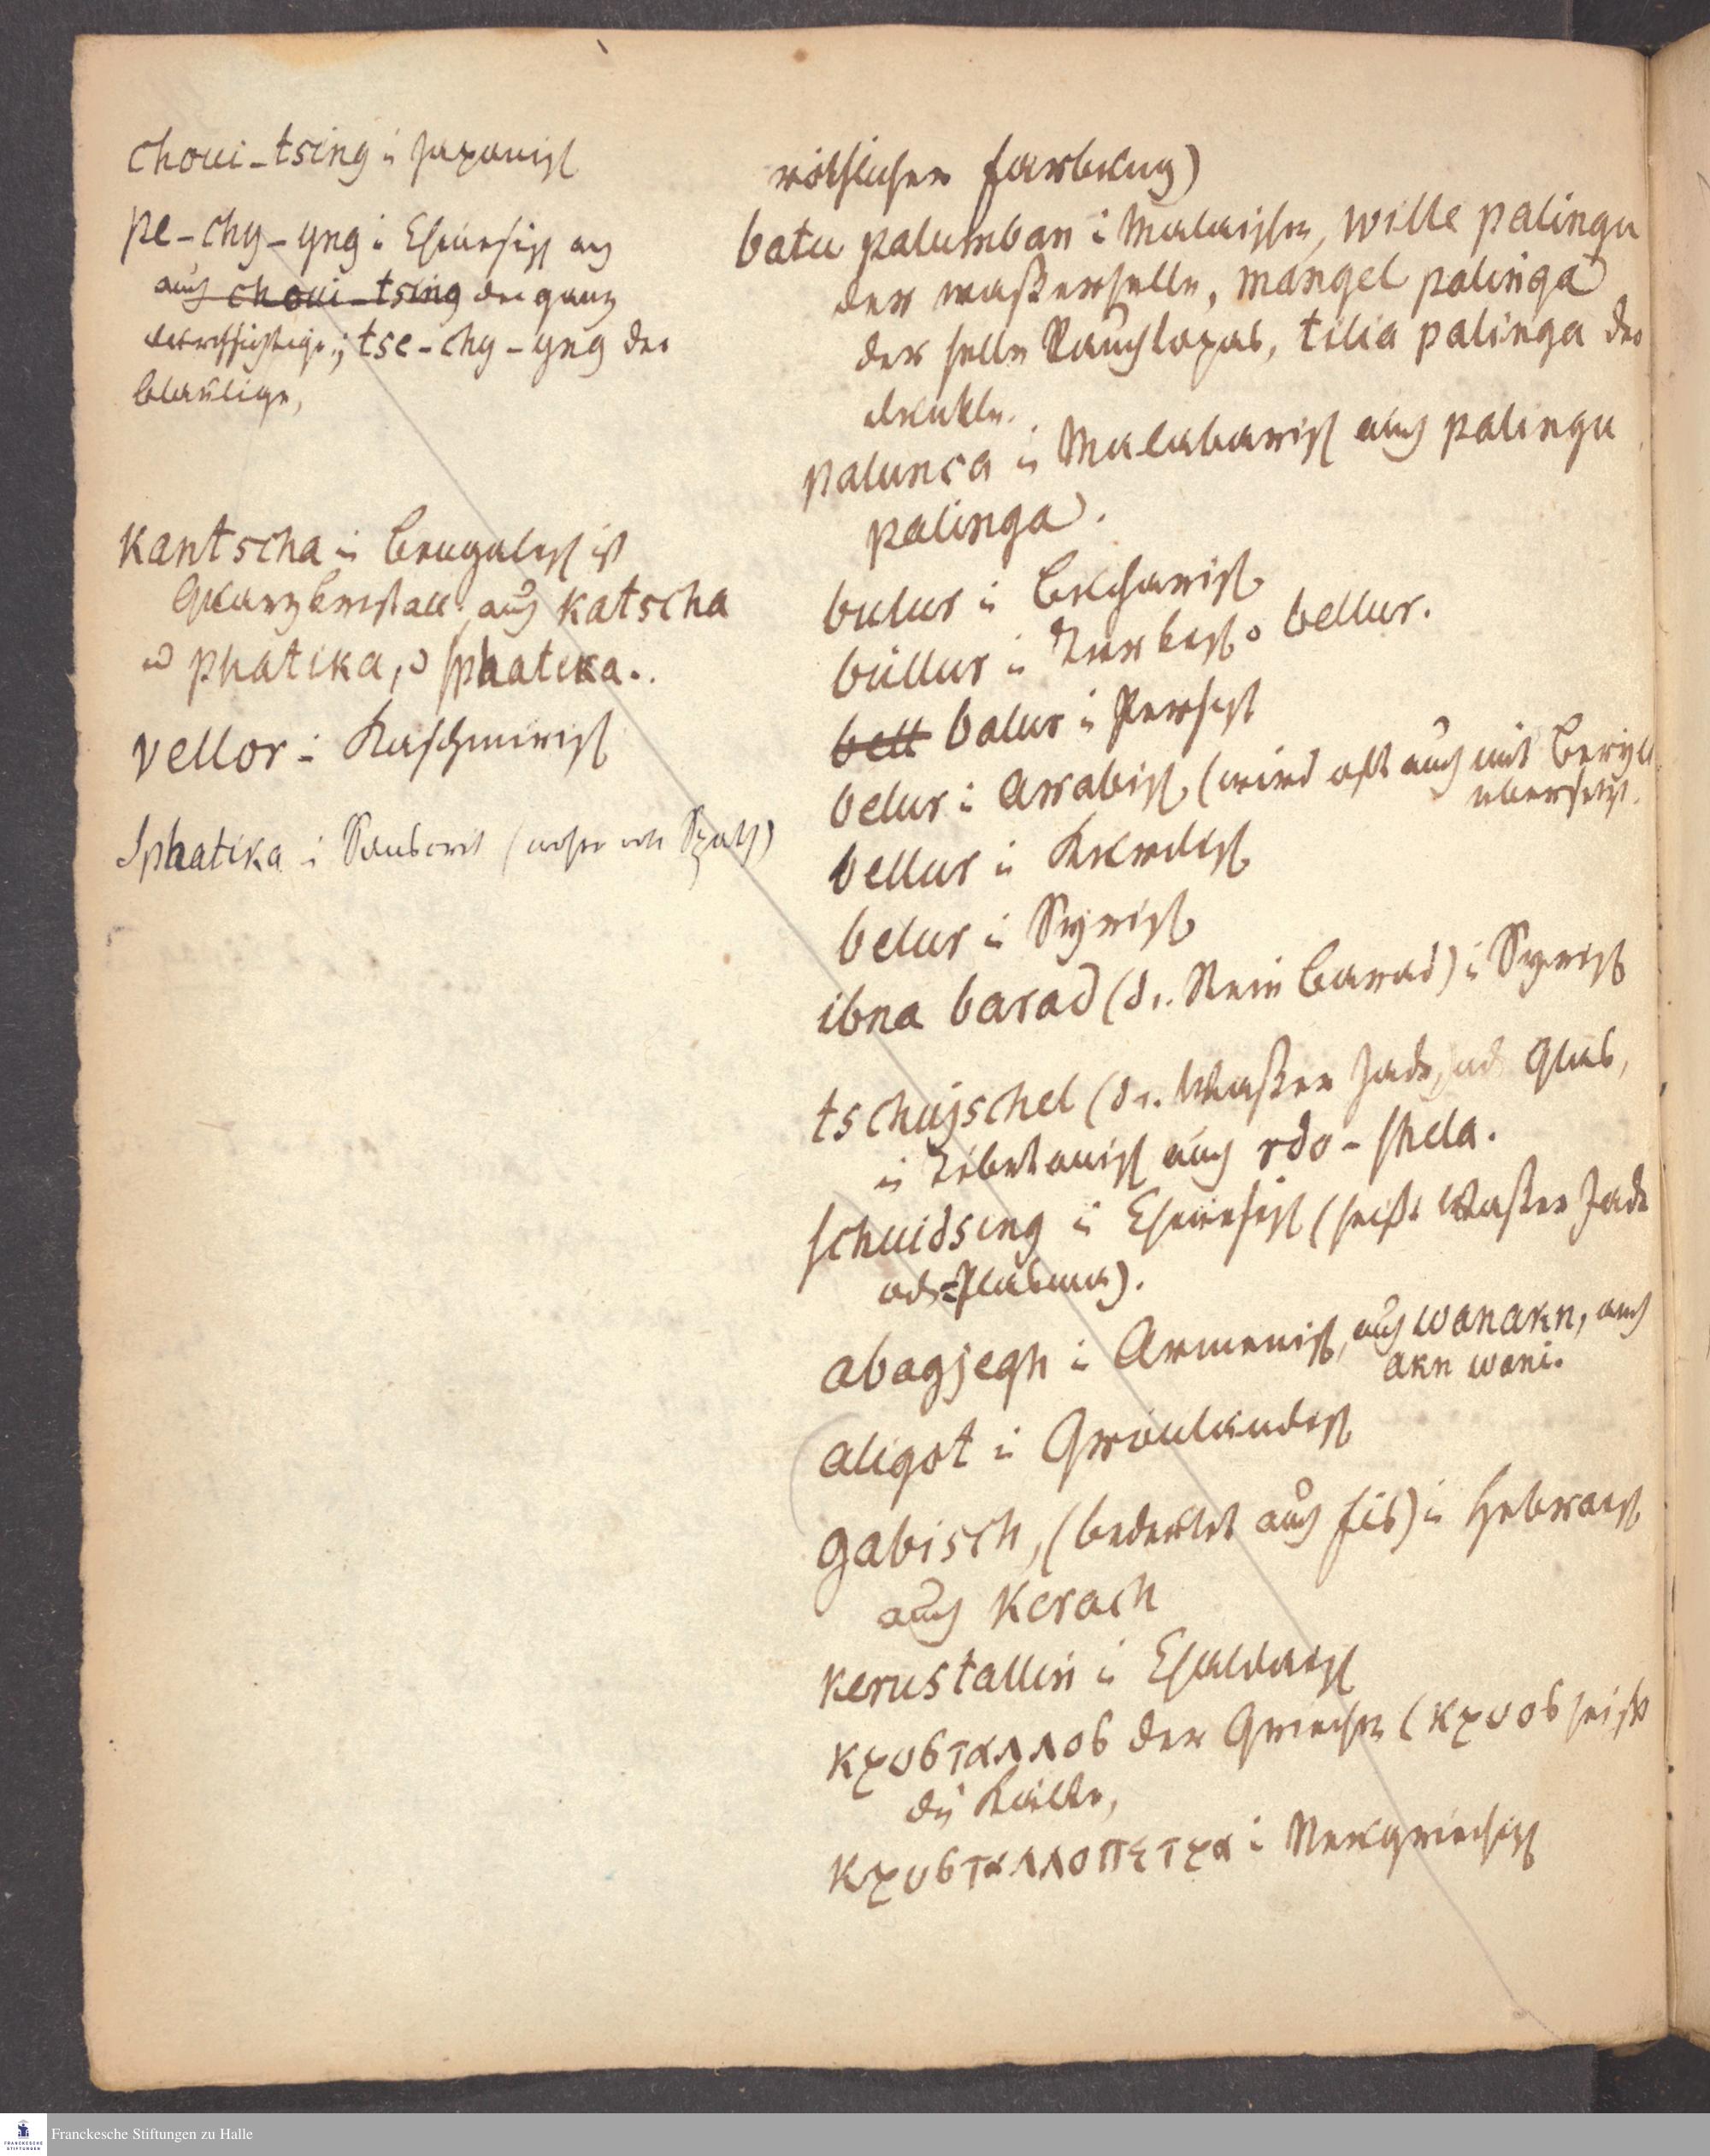 choui-tsing i Japanisch
pe-chy-yng i Chinesisch
auch choui-tsing der ganz
durchsichtige; tse-chy-yng der
blaulige,
Kantscha in Bengalisch ist
Quarzkristall auch Katscha
phatika, Sphatika.
vellor i Kaschmirisch
Sphatika i Sanscrit
röthlicher Farbung)
batu palumban i Malaischen, wille palingu
der waßerhelle, mangel palinga
der helle Rauchtopas, tilia palinga der
dunkle.
palunca in Malabarisch auch palingu
palinga.
bulur in Bucharisch
büllur in Turkisch bellur.
bell balur in Persisch
belur i Arrabisch (wird oft auch mit Beryll
übersetzt.
bellur in Kurdisch
belur in Syrisch
ibna barad (d. Stein Barad) i Syrisch
tschujschel (d. i. Waßer Jade, od Glas,
in Tibetanisch auch rdo-shela.
schuidsing in Chinesisch (heißt Waßer Jade
od Plasma).
abagjegh i Armenisch, auch wanakn, auch
akn wani.
aligot in Grönlandisch
gabisch, (bedeutet auch Eis) in Hebraisch
auch Kerach
Kerustallin i Chaldaisch
κρυσταλλος der Griechen (κρυος heißt
die Kälte,
κρυσταλλοπετρα i Neugriechisch
Franckesche Stiftungen zu Halle